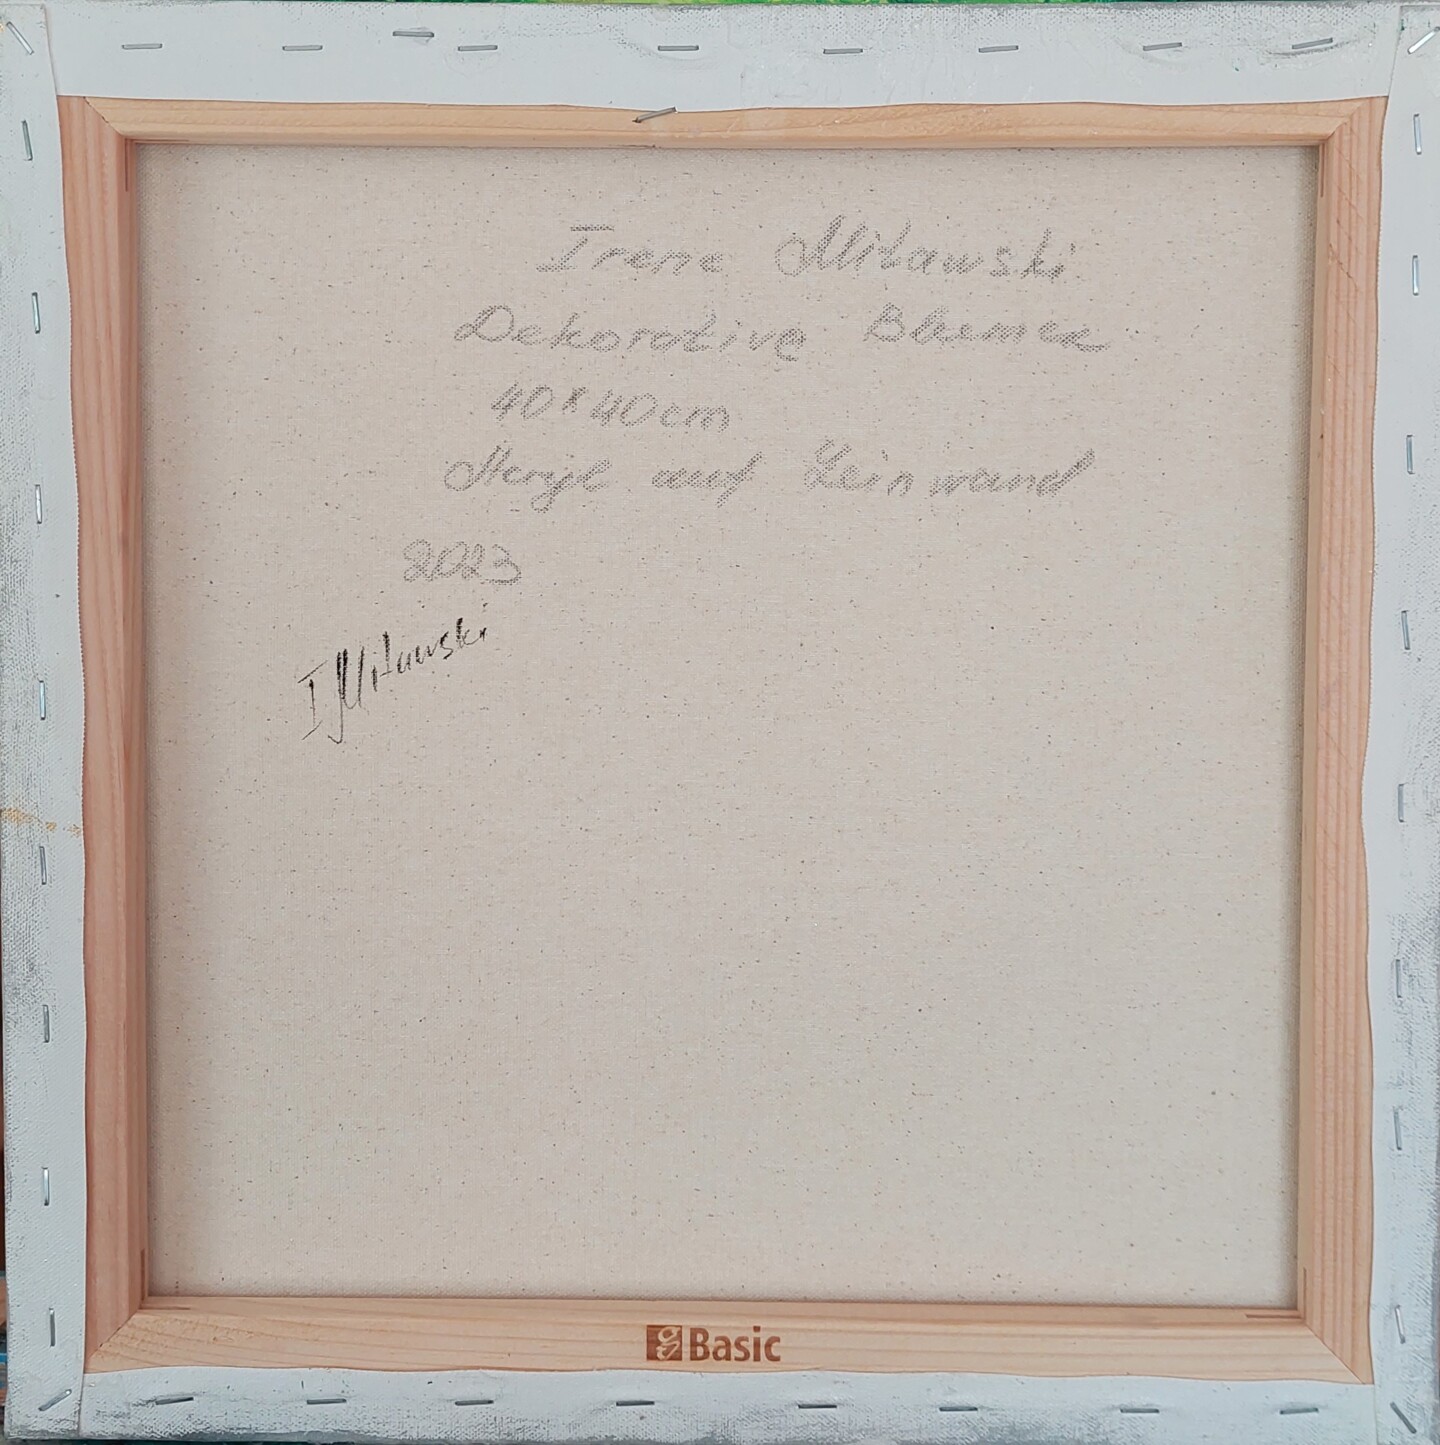 Irene Milawski
Dekorative Blumen
40x40cm
Acryl auf Leinwand
2023
I Milawski
Basic